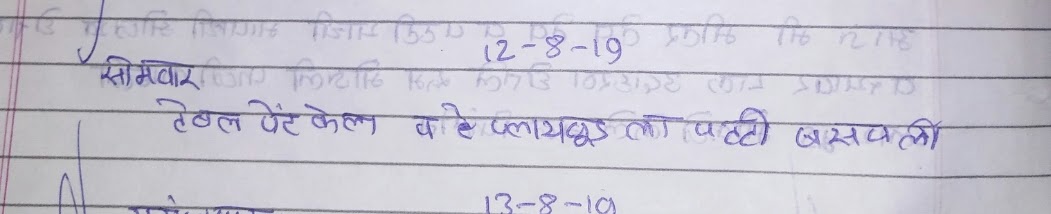 12-8-19
सोमवार
टेबल पेंट केल व प्लायवूड ला पट्टी बसवली
13-8-19